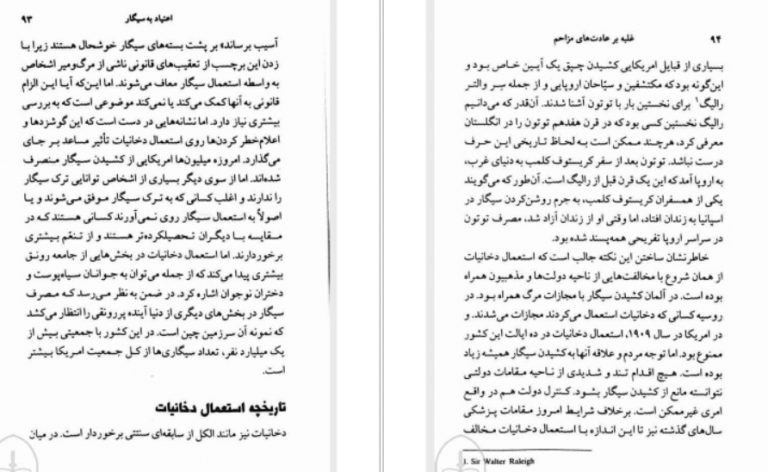 اعتیاد به سیگار ۹۳
آسیب برساند» بر پشت بسته‌های سیگار خوشحال هستند زیرا با
زدن این برچسب از تعقیب‌های قانونی ناشی از مرگ‌ومیر اشخاص
به واسطه استعمال سیگار معاف می‌شوند. اما این‌که آیا این الزام
قانونی به آنها کمک می‌کند یا نمی‌کند موضوعی است که به بررسی
بیشتری نیاز دارد. اما نشانه‌هایی در دست است که این گوشزدها و
اعلام‌خطر کردن‌ها روی استعمال دخانیات تأثیر مساعد بر جای
می‌گذارد. امروزه میلیون‌ها امریکایی از کشیدن سیگار منصرف
شده‌اند. اما از سوی دیگر بسیاری از اشخاص توانایی ترک سیگار
را ندارند و اغلب کسانی که به ترک سیگار موفق می‌شوند و یا
اصولاً به استعمال سیگار روی نمی‌آورند کسانی هستند که در
مقایسه با دیگران تحصیلکرده‌تر هستند و از تنعّم بیشتری
برخوردارند. اما استعمال دخانیات در بخش‌هایی از جامعه رونق
بیشتری پیدا می‌کند که از جمله می‌توان به جوانان سیاه‌پوست و
دختران نوجوان اشاره کرد. در ضمن به نظر می‌رسد که مصرف
سیگار در بخش‌های دیگری از دنیا آینده پررونقی را انتظار می‌کشد
که نمونه آن سرزمین چین است. در این کشور با جمعیتی بیش از
یک میلیارد نفر، تعداد سیگاری‌ها از کل جمعیت امریکا بیشتر
است.
تاریخچه استعمال دخانیات
دخانیات نیز مانند الکل از سابقه‌ای سنتی برخوردار است. در میان
۹۴ غلبه بر عادت‌های مزاحم
بسیاری از قبایل امریکایی کشیدن چپق یک آیین خاص بود و
این‌گونه بود که مکتشفین و سیّاحان اروپایی و از جمله سِر والتر
رالیگ¹ برای نخستین بار با توتون آشنا شدند. آن‌قدر که می‌دانیم
رالیگ نخستین کسی بود که در قرن هفدهم توتون را در انگلستان
معرفی کرد، هرچند ممکن است به لحاظ تاریخی این حرف
درست نباشد. توتون بعد از سفر کریستوف کلمب به دنیای غرب،
به اروپا آمد که این یک قرن قبل از رالیگ است. آن‌طور که می‌گویند
یکی از همسفران کریستوف کلمب، به جرم روشن‌کردن سیگار در
اسپانیا به زندان افتاد، اما وقتی او از زندان آزاد شد، مصرف توتون
در سراسر اروپا تفریحی همه‌پسند شده بود.
خاطرنشان ساختن این نکته جالب است که استعمال دخانیات
از همان شروع با مخالفت‌هایی از ناحیه دولت‌ها و مذهبیون همراه
بوده است. در آلمان کشیدن سیگار با مجازات مرگ همراه بود. در
روسیه کسانی که دخانیات استعمال می‌کردند مجازات می‌شدند. و
در امریکا در سال ۱۹۰۹، استعمال دخانیات در ده ایالت این کشور
ممنوع بود. اما توجه مردم و علاقه آنها به کشیدن سیگار همیشه زیاد
بوده است. هیچ اقدام تند و شدیدی از ناحیه مقامات دولتی
نتوانسته مانع از کشیدن سیگار بشود. کنترل دولت هم در واقع
امری غیرممکن است. برخلاف شرایط امروز مقامات پزشکی
سال‌های گذشته نیز تا این اندازه با استعمال دخانیات مخالف
1. Sir Walter Raleigh